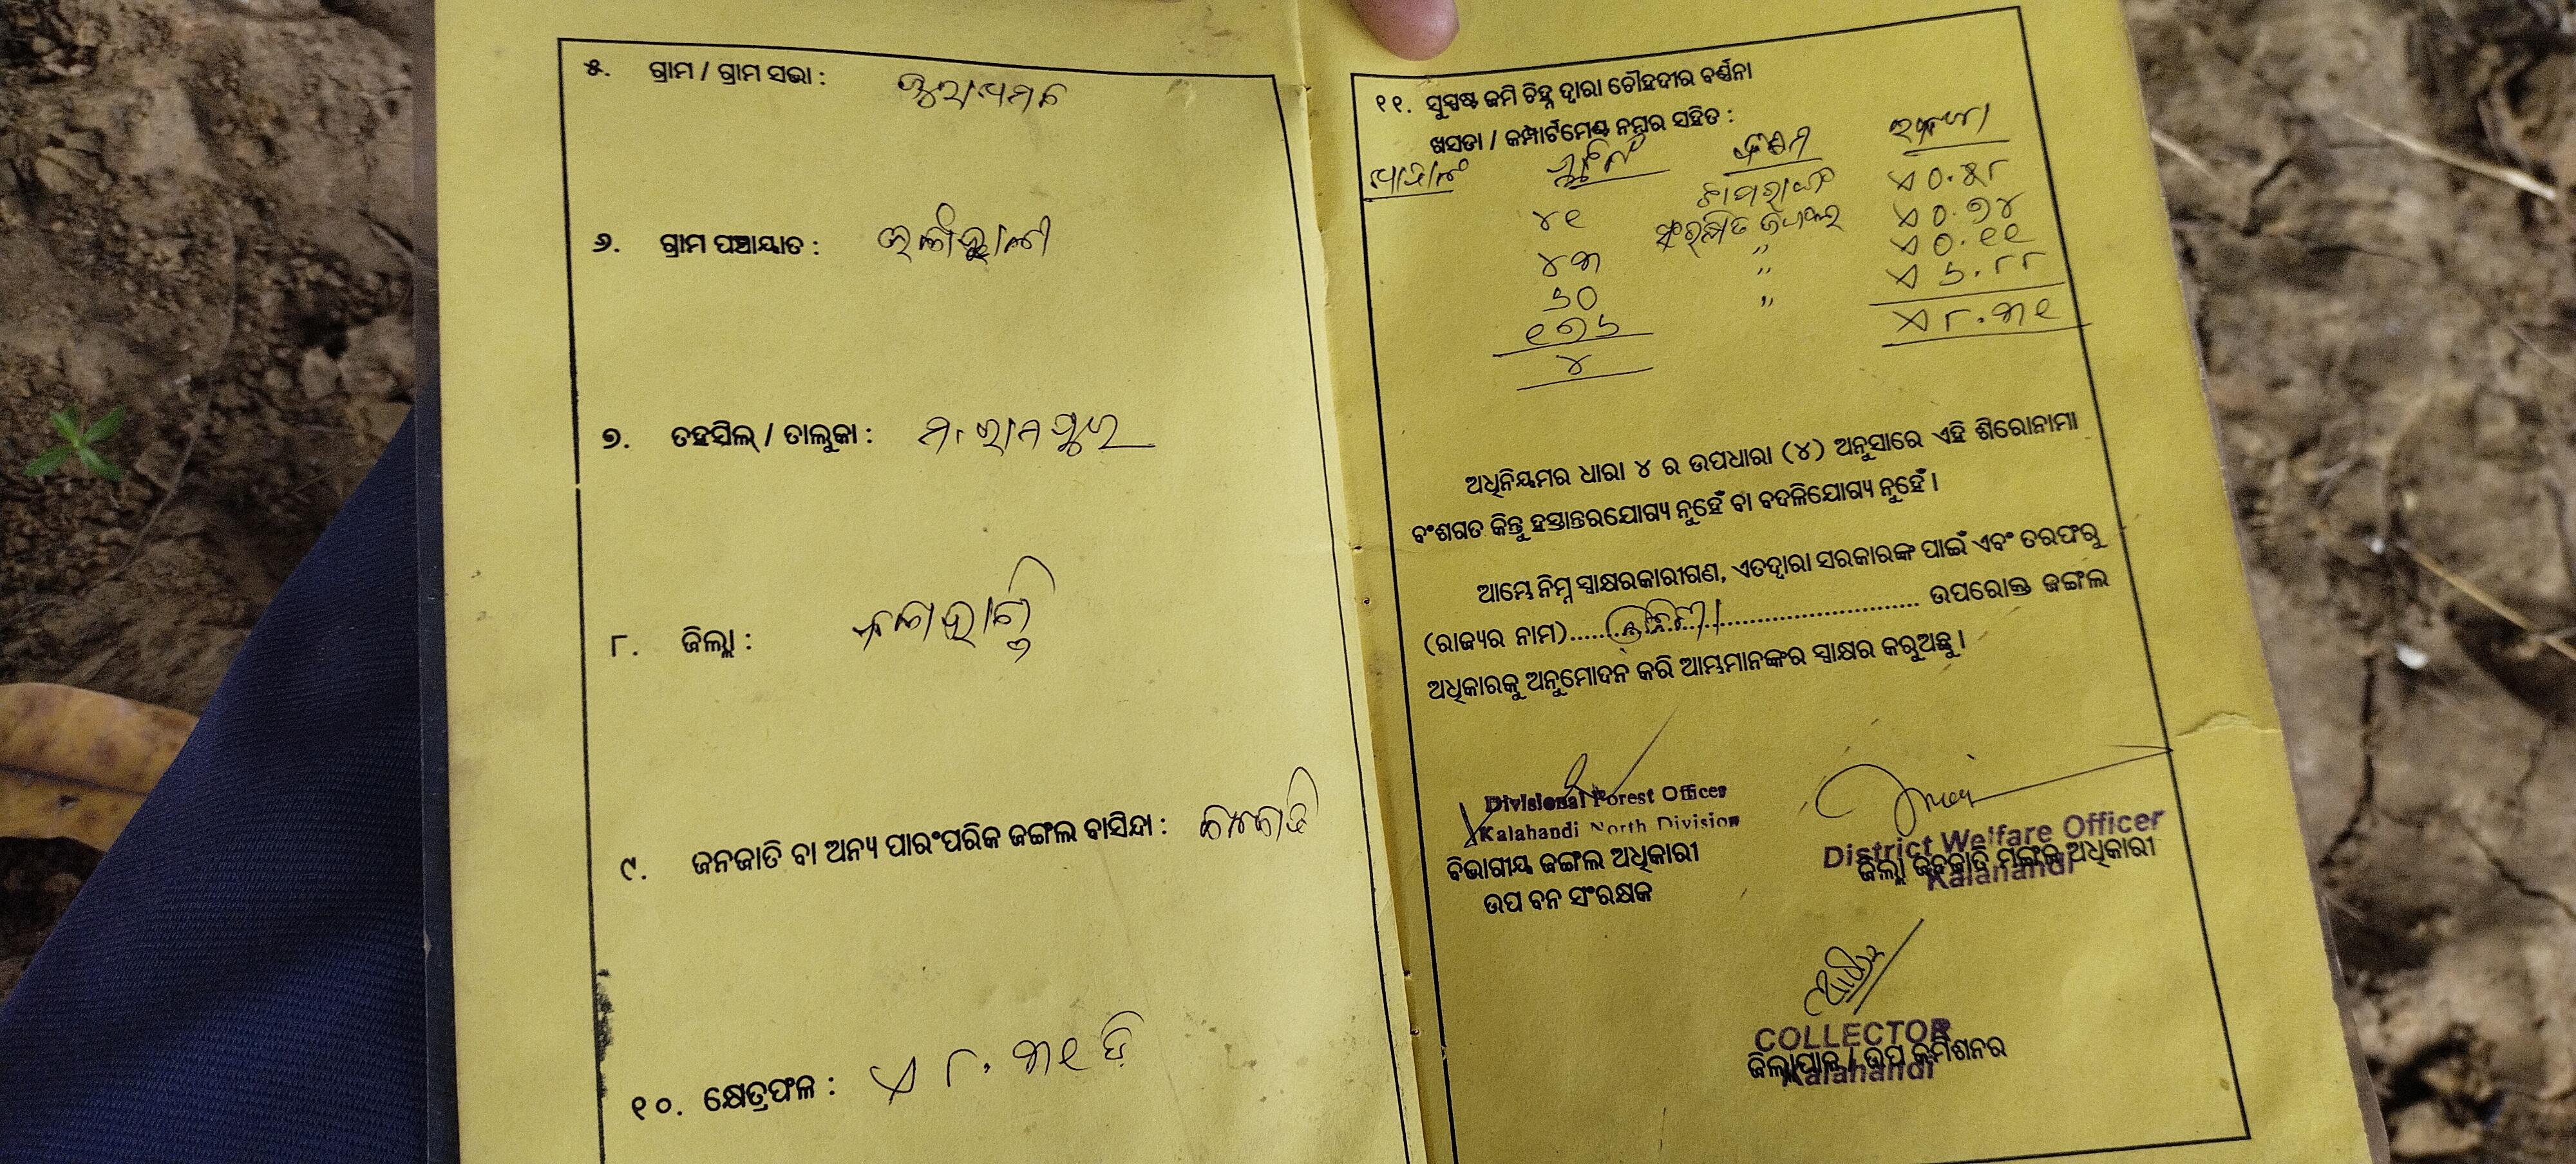 ୫. ଗ୍ରାମ / ଗ୍ରାମ ସଭା :
୬. ଗ୍ରାମ ପଞ୍ଚାୟାତ :
୭. ତହସିଲ୍ / ତାଲୁକା : ମ. ରାମପୁର
୮. ଜିଲ୍ଲା : କଳାହାଣ୍ଡି
୯. ଜନଜାତି ବା ଅନ୍ୟ ପାରଂପରିକ ଜଙ୍ଗଲ ବାସିନ୍ଦା : ଜନଜାତି
୧୦. କ୍ଷେତ୍ରଫଳ : ଏ ୮.୩୧ ଡି
୧୧. ସୁସ୍ପଷ୍ଟ ଜମି ଚିହ୍ନ ଦ୍ୱାରା ଚୌହଦୀର ବର୍ଣ୍ଣନା
ଖସଡା / କମ୍ପାର୍ଟମେଣ୍ଟ ନମ୍ବର ସହିତ :
କିସମ ରକବା
୪୧
ସଂରକ୍ଷିତ ଜଙ୍ଗଲ ଏ ୦.୭୪
୪୩ " ଏ ୦.୧୧
୬୦ " ଏ ୬.୮୮
୧୭୬ "
୪ ଏ ୮.୩୧
ଅଧିନିୟମର ଧାରା ୪ ର ଉପଧାରା (୪) ଅନୁସାରେ ଏହି ଶିରୋନାମା
ବଂଶଗତ କିନ୍ତୁ ହସ୍ତାନ୍ତରଯୋଗ୍ୟ ନୁହେଁ ବା ବଦଳିଯୋଗ୍ୟ ନୁହେଁ ।
ଆମ୍ଭେ ନିମ୍ନ ସ୍ୱାକ୍ଷରକାରୀଗଣ, ଏତଦ୍ୱାରା ସରକାରଙ୍କ ପାଇଁ ଏବଂ ତରଫରୁ
(ରାଜ୍ୟର ନାମ)...ଓଡ଼ିଶା... ଉପରୋକ୍ତ ଜଙ୍ଗଲ
ଅଧିକାରକୁ ଅନୁମୋଦନ କରି ଆମ୍ଭମାନଙ୍କର ସ୍ୱାକ୍ଷର କରୁଅଛୁ ।
Divisional Forest Officer
Kalahandi North Division
ବିଭାଗୀୟ ଜଙ୍ଗଲ ଅଧିକାରୀ
ଉପ ବନ ସଂରକ୍ଷକ
District Welfare Officer
ଜିଲ୍ଲା ଜନଜାତି ମଙ୍ଗଳ ଅଧିକାରୀ
Kalahandi
COLLECTOR
ଜିଲ୍ଲାପାଳ / ଉପ କମିଶନର
Kalahandi